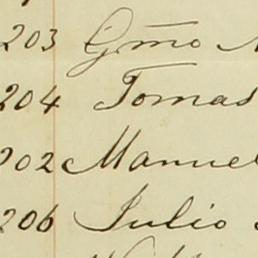 203 Gmo
204 Tomas
202 Manuel
206 Julio